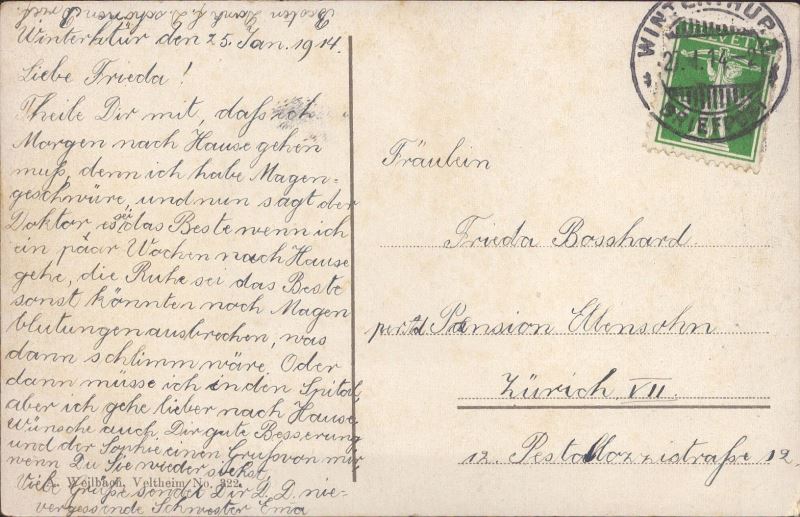 Besten Dank f. d. schönen
Winterthur den 25. Jan. 1914.
Liebe Frieda!
Theile Dir mit, dass ich
Morgen nach Hause gehen
muß, denn ich habe Magen-
geschwüre, und nun sagt der
Doktor es sei das Beste wenn ich
ein paar Wochen nach Hause
gehe, die Ruhe sei das Beste
sonst könnten noch Magen
blutungen ausbrechen, was
dann schlimm wäre. Oder
dann müsse ich in den Spital,
aber ich gehe lieber nach Hause
Wünsche auch Dir gute Besserung
und der Sophie einen Gruß von mir
wenn Du Sie wieder siehst,
Viele Grüße sendet Dir D. D. nie-
vergessende Schwester Ema
Weilbach, Veltheim No. 322.
WINTERTHUR
BRIEFPOST
HELVETIA
Fräulein
Frieda Bosshard
per Ad Pension Ebensohn
Zürich VII.
12. Pestallozzistraße 12.